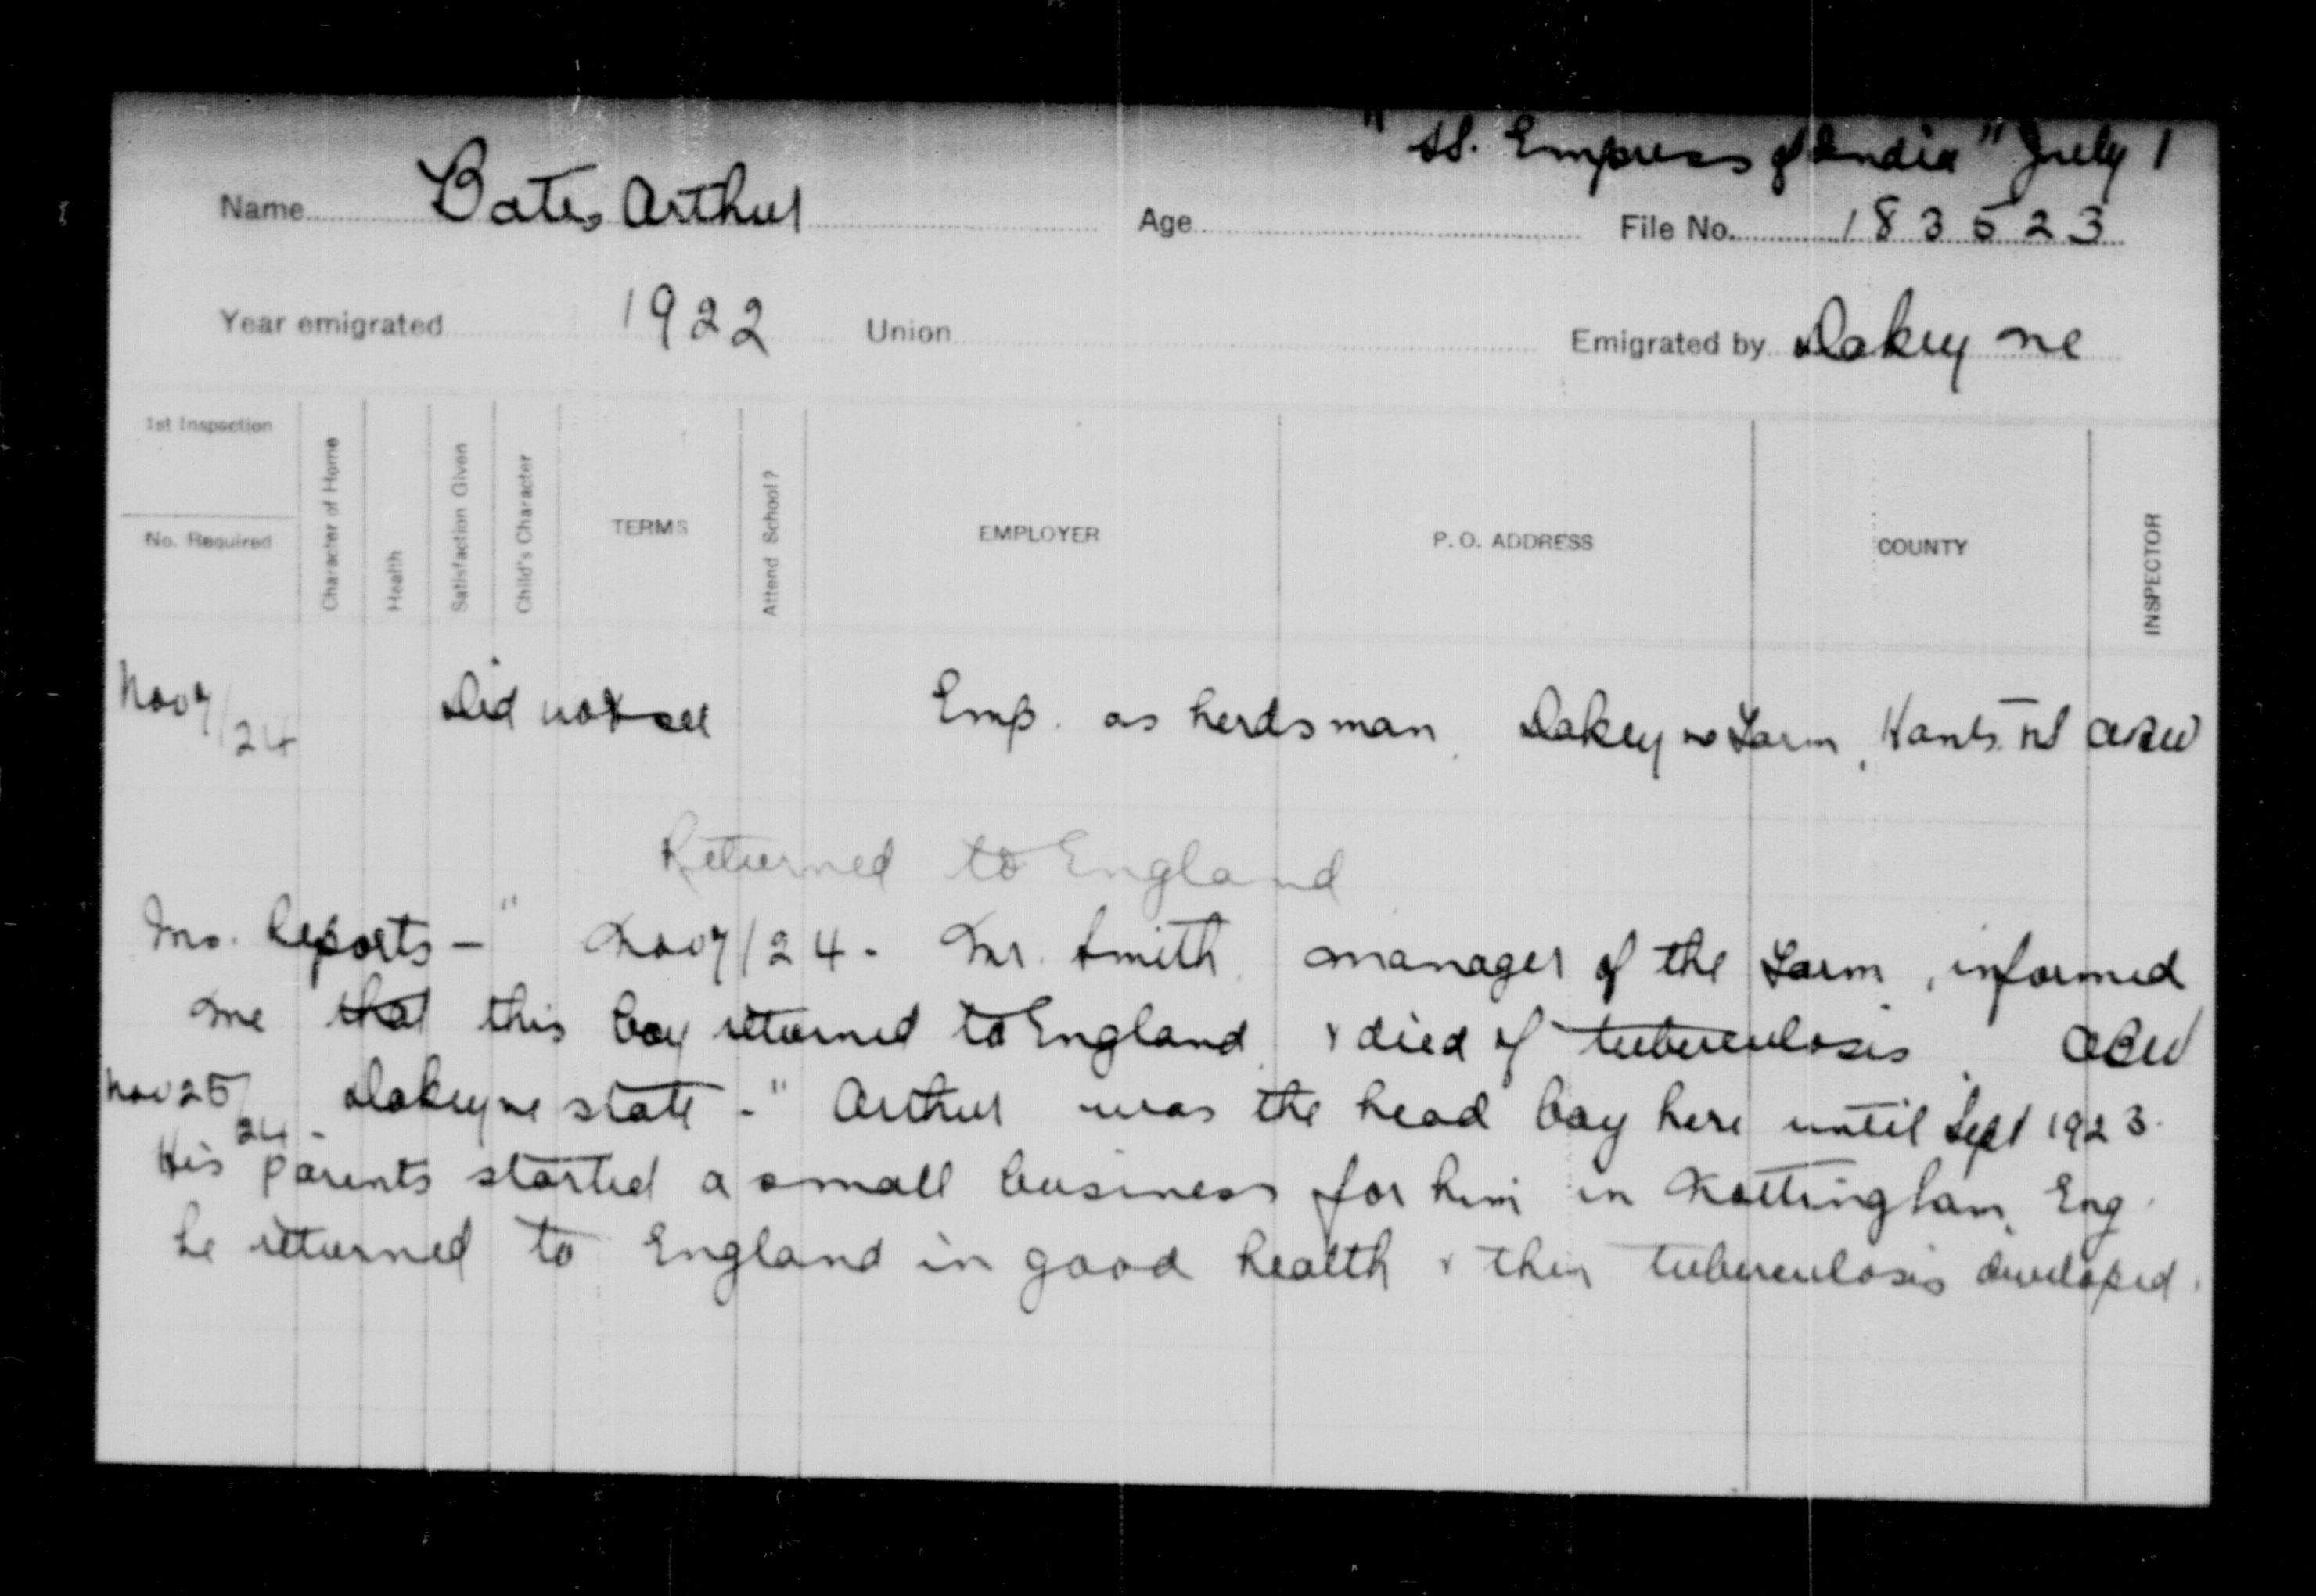 "SS. Empress of India" July 1
Name Bates, Arthur Age File No. 183523
Year emigrated 1922 Union Emigrated by Dakeyne
1st Inspection
No. Required
Character of Home
Health
Satisfaction Given
Child's Character
TERMS
Attend School?
EMPLOYER
P.O. ADDRESS
COUNTY
INSPECTOR
Nov 7/24 Did not see Emp. as herdsman. Dakeyne Farm, Hants. NS
Returned to England
Reports - " Nov 7/24 - Mr. Smith, manager of the Farm, informed
me that this boy returned to England & died of tuberculosis.
Nov 25/24 - Dakeyne state - " Arthur was the head boy here until Sept 1923.
His parents started a small business for him in Nottingham, Eng.
he returned to England in good health & then tuberculosis developed.